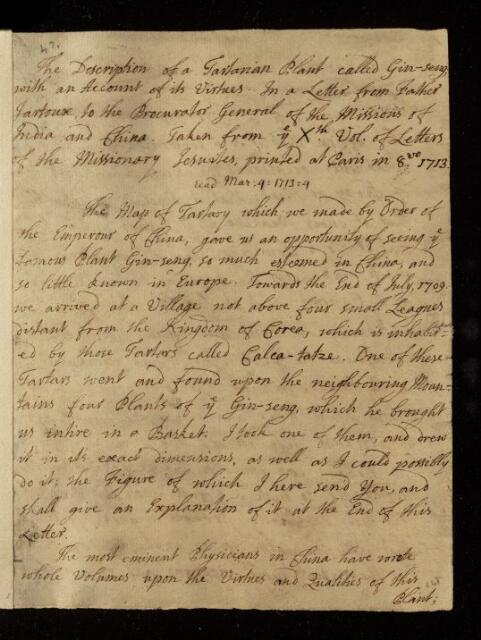 The Description of a Tartarian Plant called Gin-seng,
with an Account of its Virtues. In a Letter from Father
Jartoux, to the Procurator General of the Missions of
India and China. Taken from yͤ Xth. Vol. of Letters
of the Missionary Jesuites, printed at Paris in 8vo 1713.
read Mar: 4: 1713:4
The Map of Tartary which we made by Order of
the Emperour of China, gave us an opportunity of seeing yͤ
famous Plant Gin-seng, so much esteemed in China, and
so little known in Europe. Towards the End of July, 1709
we arrived at a Village not above four small Leagues
distant from the Kingdom of Corea, which is inhabit-
ed by those Tartars called Calca-tatze. One of these
Tartars went and found upon the neighbouring Moun-
tains four Plants of yͤ Gin-seng, which he brought
us intire in a Basket. I took one of them, and drew
it in its exact dimensions, as well as I could possibly
do it; the Figure of which I here send You, and
shall give an Explanation of it at the End of this
Letter.
The most eminent Physicians in China have wrote
whole Volumes upon the Virtues and Qualities of this
Plant;